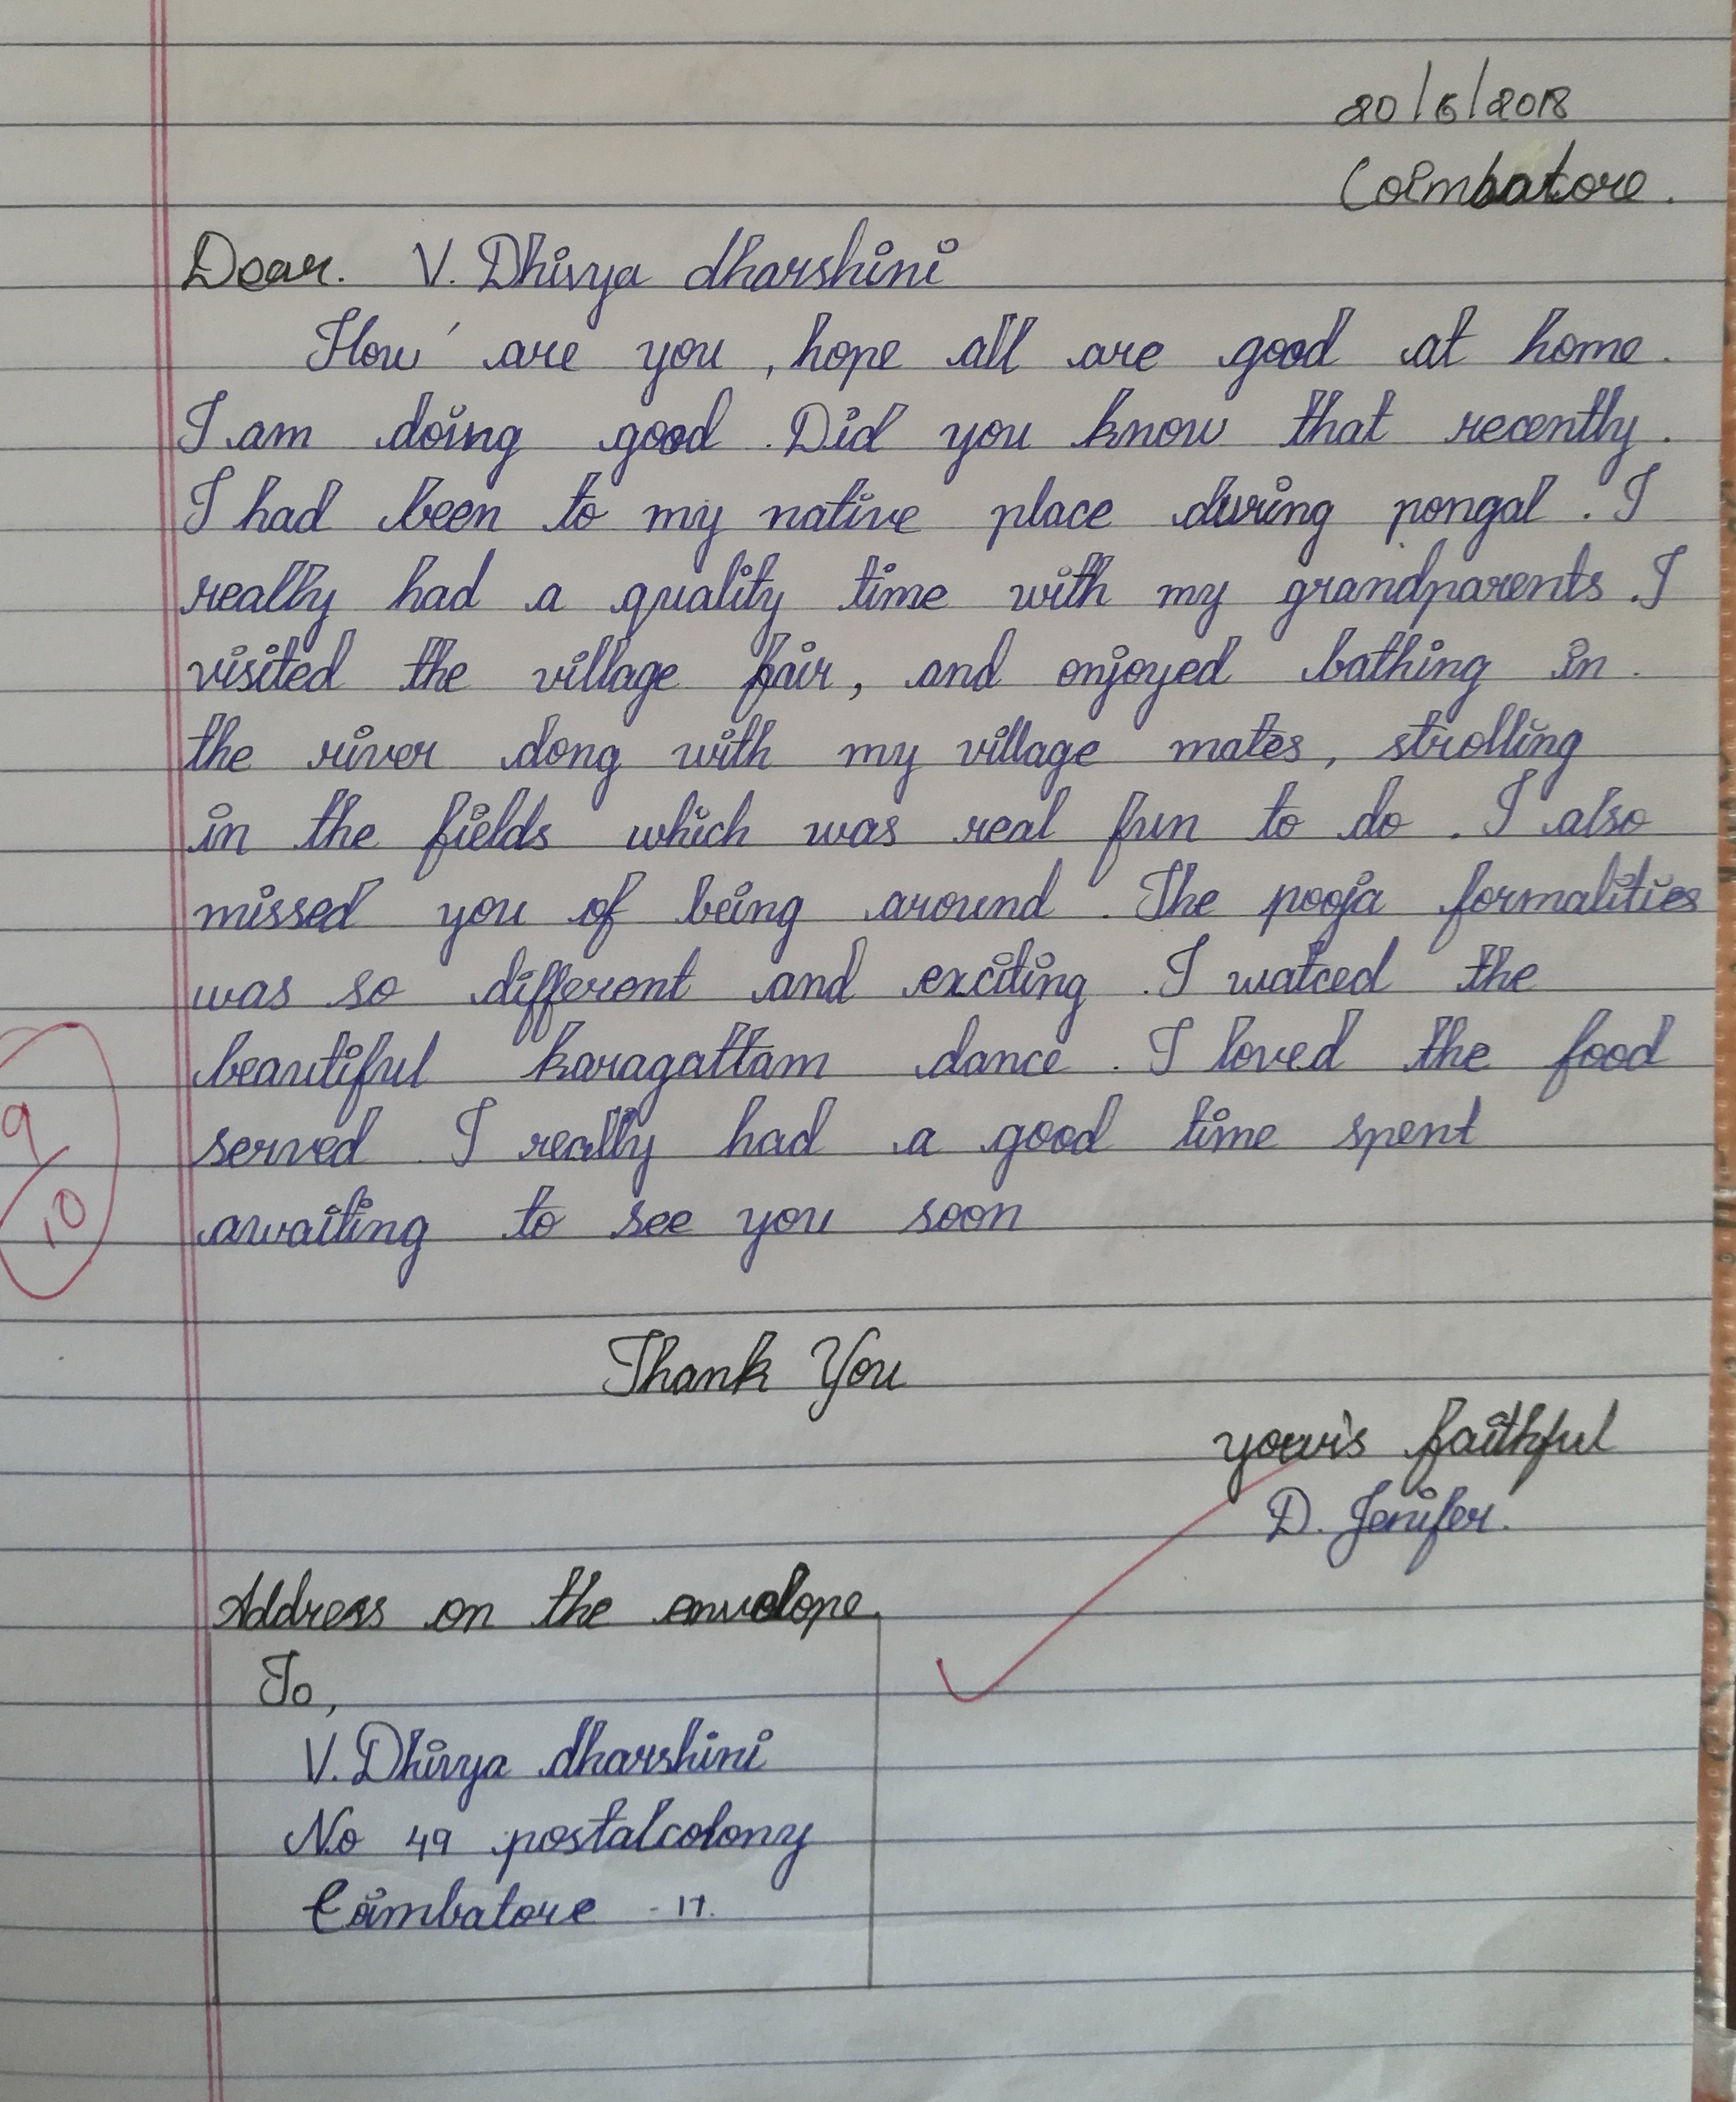 20/6/2018
Coimbatore.
Dear. V. Dhivya dharshini
How are you, hope all are good at home.
I am doing good. Did you know that recently.
I had been to my native place during pongal. I
really had a quality time with my grandparents. I
visited the village fair, and enjoyed bathing in.
the river dong with my village mates, strolling
in the fields which was real fun to do. I also
missed you of being around. The pooja formalities
was so different and exciting. I watced the
beautiful karagattam dance. I loved the food
served. I really had a good time spent
awaiting to see you soon
9/10
Thank You
your's faithful
D. Jenifer.
Address on the envelope.
To,
V. Dhivya dharshini
No 49 postalcolony
Coimbatore - 17.